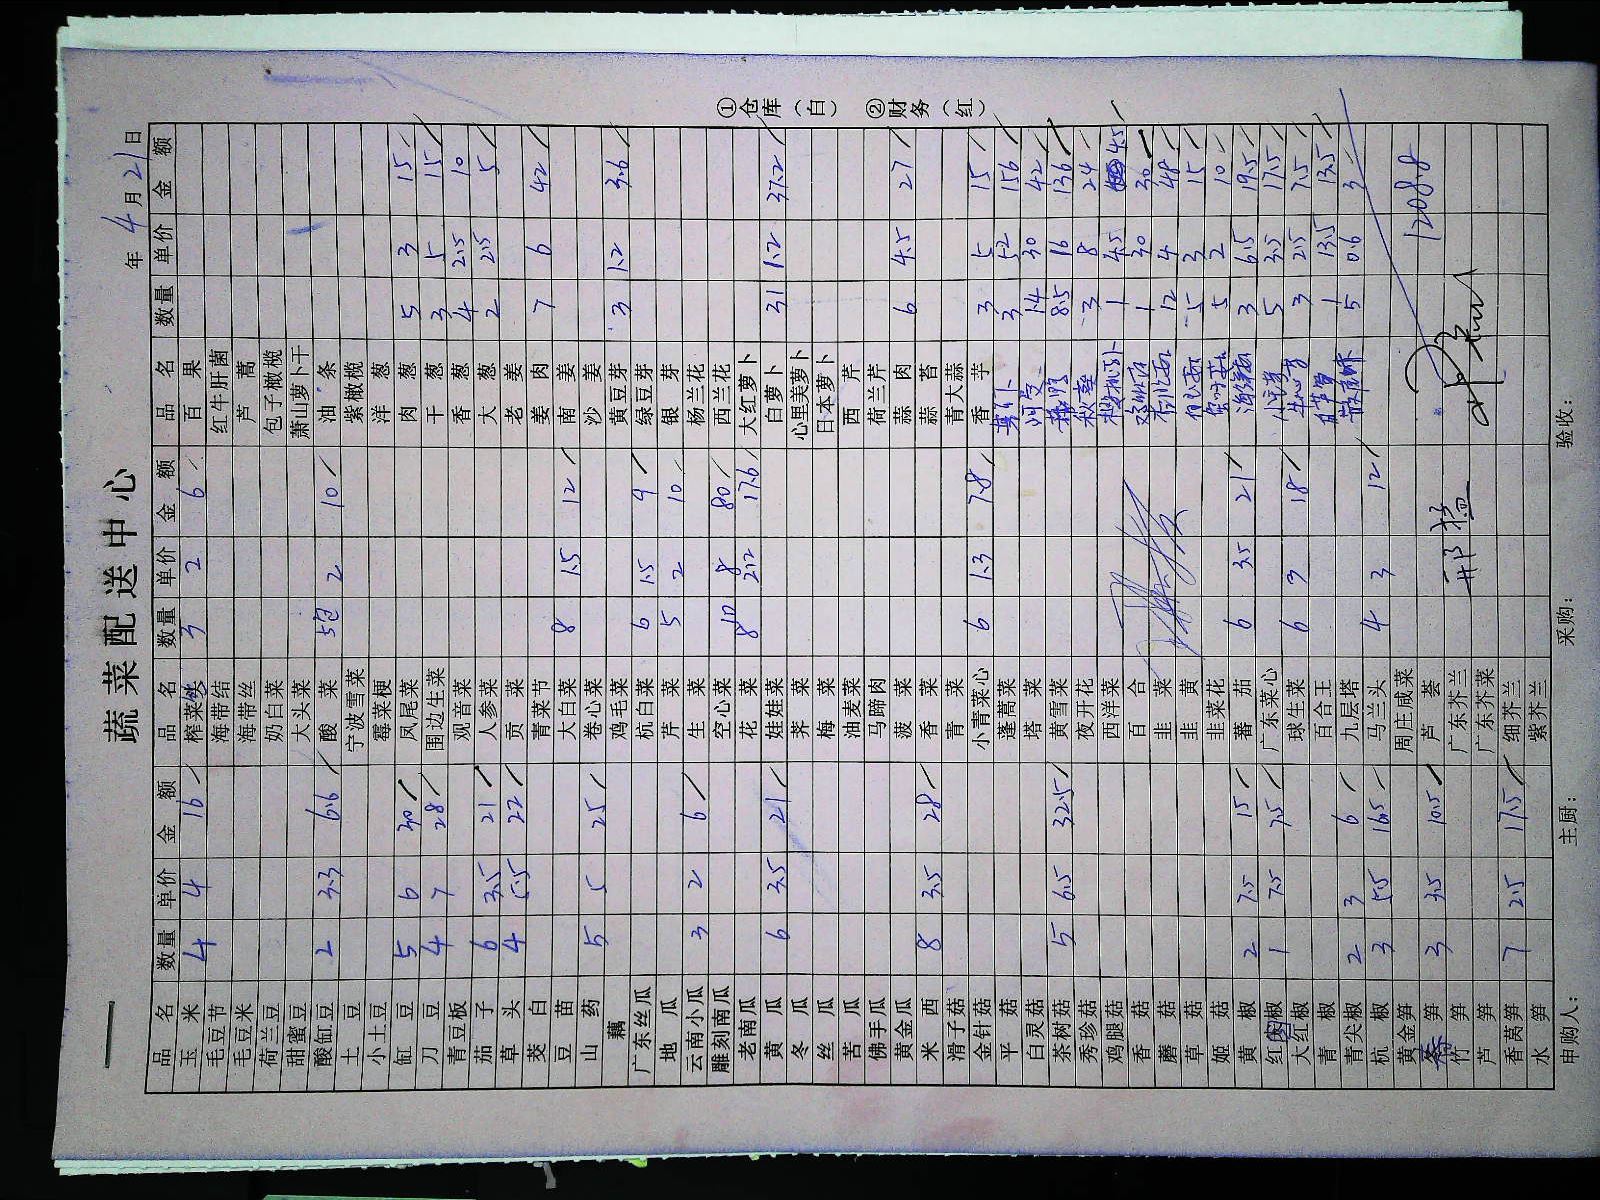 蔬菜配送中心
年 4月21日
品名 数量 单价 金额 品名 数量 单价 金额 品名 数量 单价 金额
玉米 4 4 16 榨菜 3 2 6 百果
毛豆节 海带结 红牛肝菌
毛豆米 海带丝 芦蒿
荷兰豆 奶白菜 包子橄榄
甜蜜豆 大头菜 萧山萝卜干
酸缸豆 2 3.3 6.6 酸菜 5包 2 10 油条
土豆 宁波雪菜 紫橄榄
小土豆 霉菜梗 洋葱
缸豆 5 6 30 凤尾菜 肉葱 5 3 15
刀豆 4 7 28 围边生菜 干葱 3 5 15
青豆板 观音菜 香葱 4 2.5 10
茄子 6 3.5 21 人参菜 大葱 2 2.5 5
草头 4 5.5 22 贡菜 老姜
茭白 青菜节 姜肉 7 6 42
豆苗 大白菜 8 1.5 12 南姜
山药 5 5 25 卷心菜 沙姜
藕 鸡毛菜 黄豆芽 3 1.2 3.6
广东丝瓜 杭白菜 6 1.5 9 绿豆芽
地瓜 芹菜 5 2 10 银芽
云南小瓜 3 2 6 生菜 杨兰花
雕刻南瓜 空心菜 10 8 80 西兰花
老南瓜 花菜 8 2.2 17.6 大红萝卜
黄瓜 6 3.5 21 娃娃菜 白萝卜 31 1.2 37.2
冬瓜 荠菜 心里美萝卜
丝瓜 梅菜 日本萝卜
苦瓜 油麦菜 西芹
佛手瓜 马蹄肉 荷兰芹
黄金瓜 菠菜 蒜肉 6 4.5 27
米西 8 3.5 28 香菜 蒜苔
滑子菇 青菜 青大蒜
金针菇 小青菜心 6 1.3 7.8 香芋 3 5 15
平菇 蓬蒿菜 3 52 156
白灵菇 塔菜 1.4 30 42
茶树菇 5 6.5 32.5 黄雪菜 8.5 16 136
秀珍菇 夜开花 3 8 24
鸡腿菇 西洋菜 1 4.5 4.5
香菇 百合 1 30 30
蘑菇 韭菜 12 4 48
草菇 韭黄 5 3 15
姬菇 韭菜花 5 2 10
黄椒 2 7.5 15 蕃茄 6 3.5 21 3 6.5 19.5
红椒 1 7.5 7.5 广东菜心 5 3.5 17.5
大红椒 球生菜 6 3 18 3 2.5 7.5
青椒 百合王 1 13.5 13.5
青尖椒 2 3 6 九层塔 5 0.6 3
杭椒 3 5.5 16.5 马兰头 4 3 12
黄金笋 周庄咸菜
笋 3 3.5 10.5 芦荟 1208.8
竹笋 广东芥兰
芦笋 广东芥菜
香莴笋 7 2.5 17.5 细芥兰
水笋 紫芥兰
申购人： 主厨： 采购： 验收：
①仓库（白） ②财务（红）